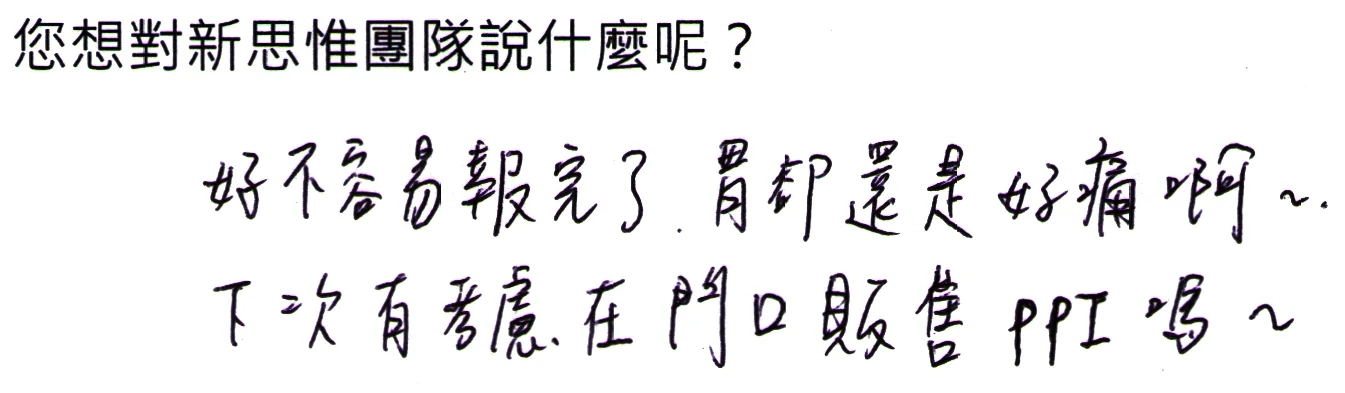 您想對新思惟團隊說什麼呢？
好不容易報完了.胃卻還是好痛啊~.
下次有考慮在門口販售PPI嗎~